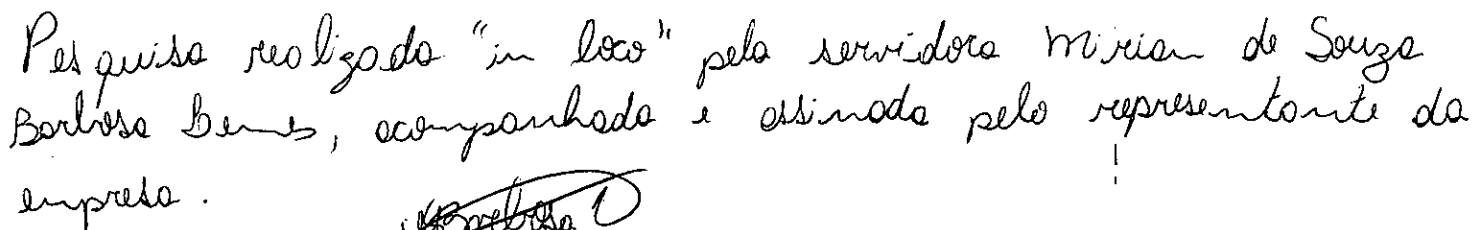 Pesquisa realizada "in loco" pela servidora Mirian de Souza
Barbosa, acompanhada e assinada pelo representante da
empresa.
Barbosa